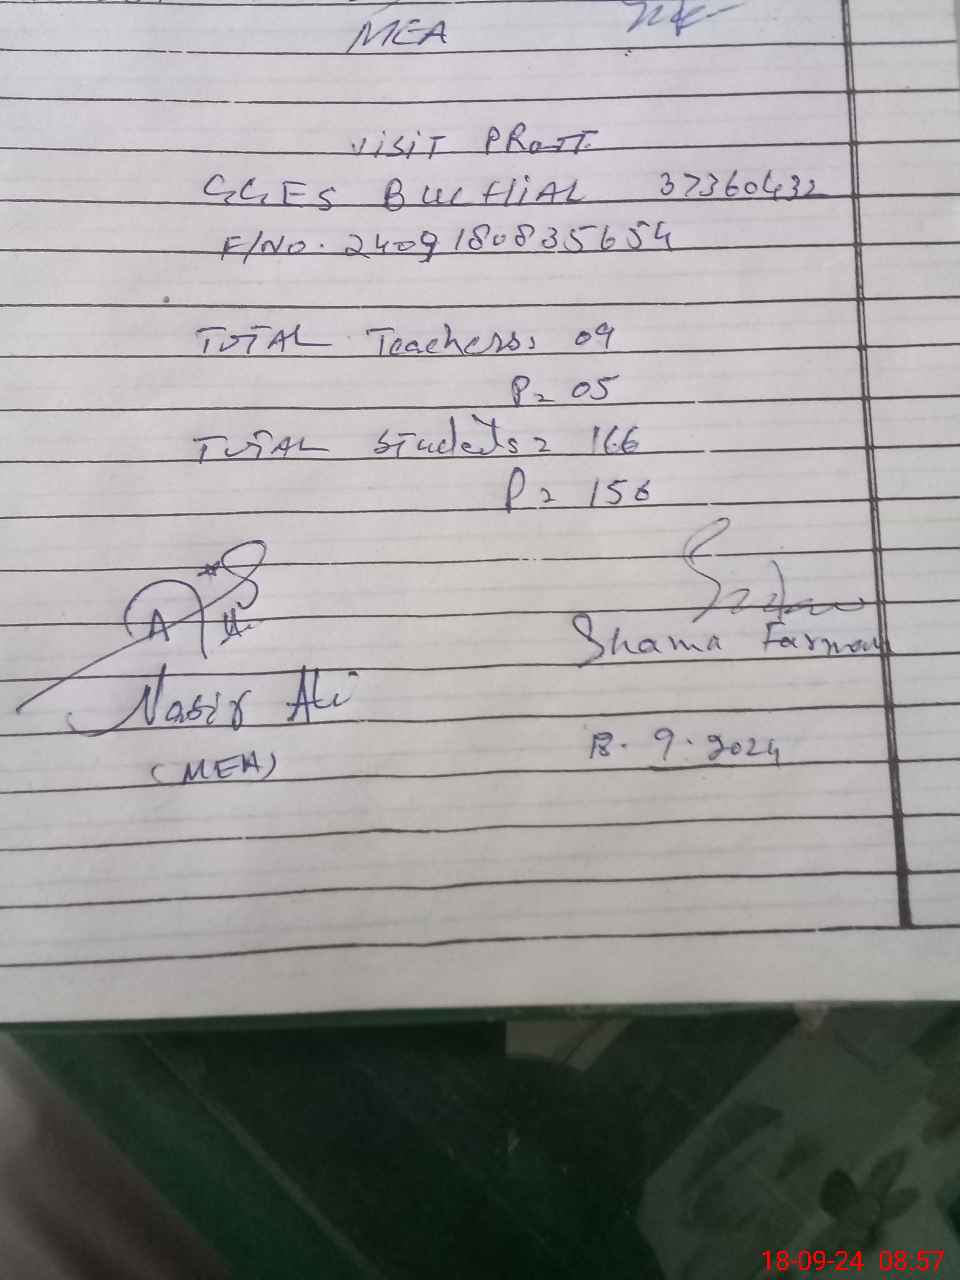 MEA
VISIT PROFF.
GGES BUCHIAL 37360432
F/NO. 2409180835654
TOTAL Teachers: 09
P= 05
TOTAL Students = 166
P = 156
Nasir Ali
Shama Farman
(MEA)
18. 9. 2024
18-09-24 08:57